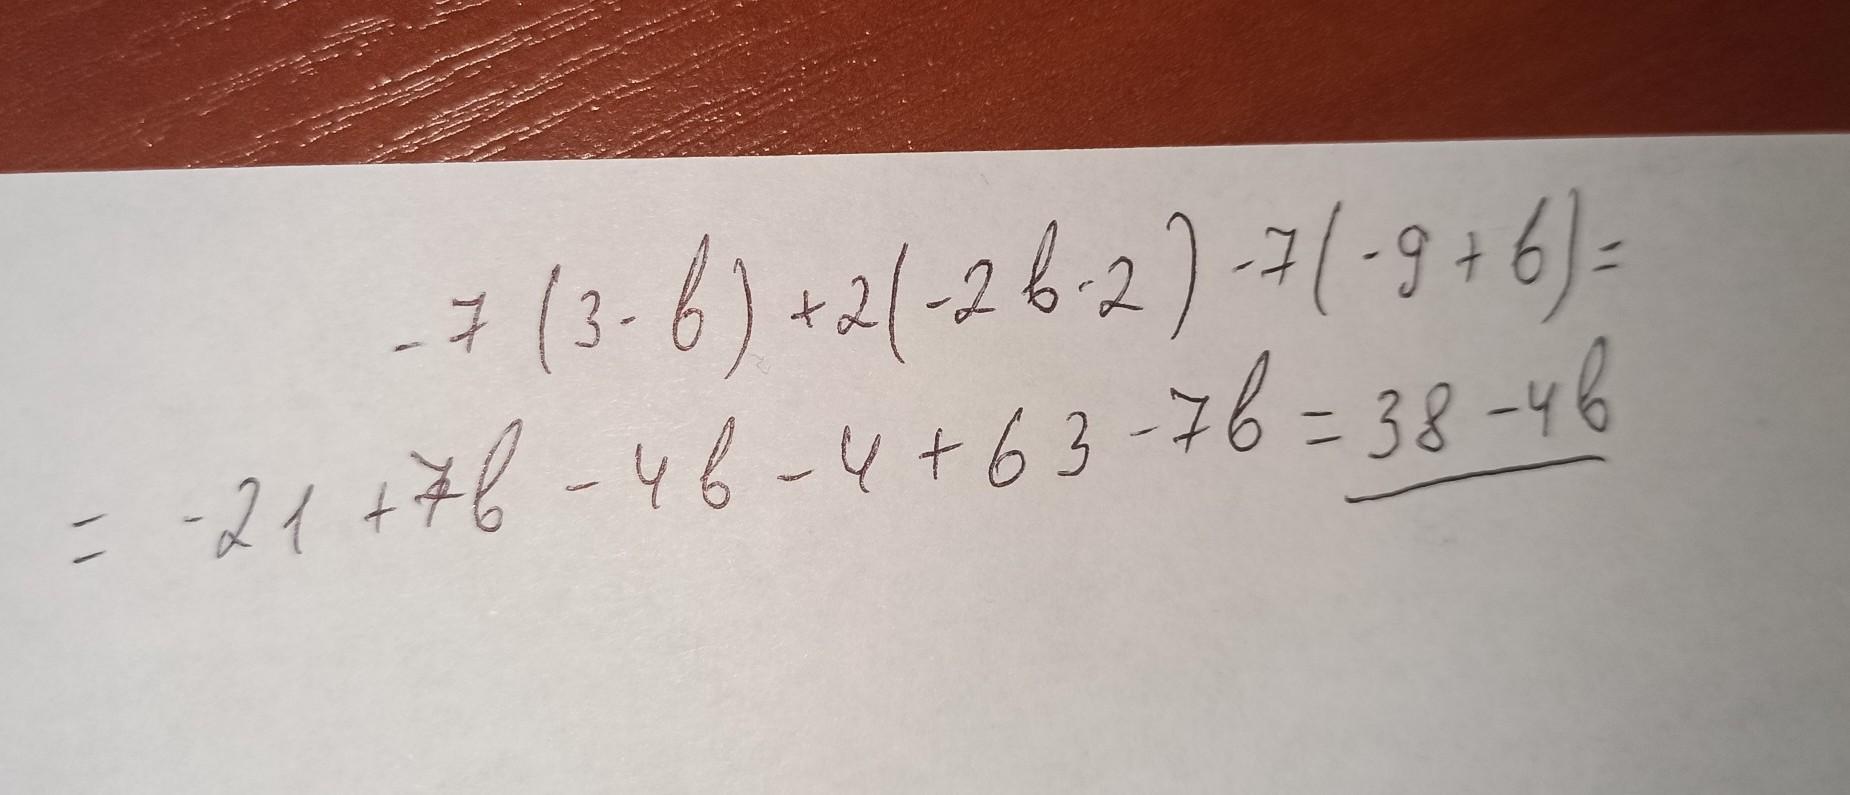 -7(3-b)+2(-2b-2)-7(-9+b)=
= -21+7b-4b-4+63-7b=38-4b